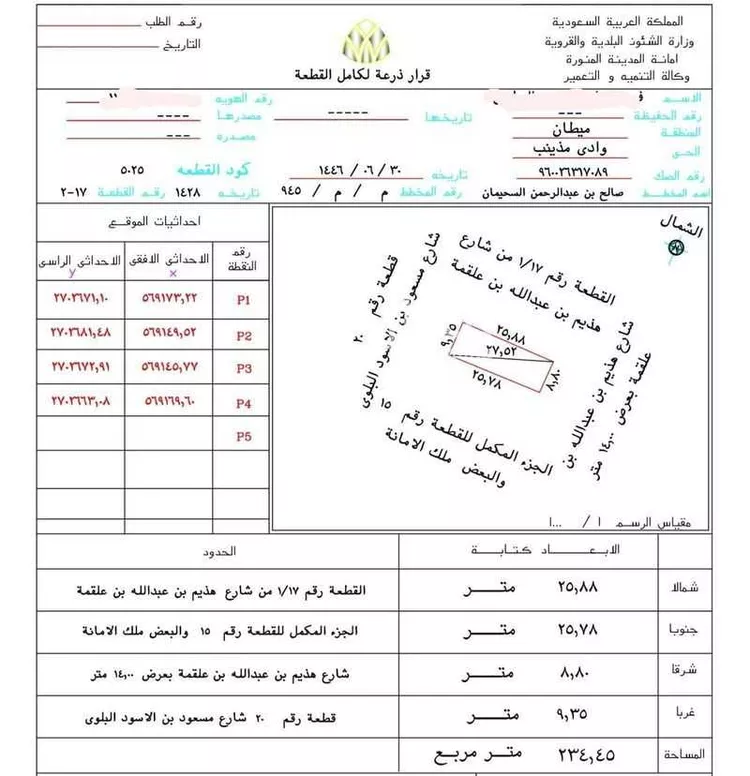 المملكة العربية السعودية
وزارة الشئون البلدية والقروية
امانة المدينة المنورة
وكالة التنميه و التعمير
قرار ذرعة لكامل القطعة
رقـم الطلب
التاريخ
الاسـم
رقم الهويه
رقم الحفيظة ---
تاريخها -----
مصدرها ----
المنطقة ميطان
مصدره ---
الحـى وادى مذينب
رقم الصك ٩٦٠٠٣٦٣١٧٠٨٩
تاريخه ١٤٤٦ / ٠٦ / ٣٠
كود القطعه ٥٠٢٥
اسم المخطـط صالح بن عبدالرحمن السحيمان
رقم المخطط ٩٤٥ / م / م
تاريخـه ١٤٢٨
رقم القطعـة ١٧-٢
احداثيات الموقع
رقم النقطة
الاحداثى الافقى x
الاحداثى الراسى y
P1 ٥٦٩١٧٣,٢٢ ٢٧٠٣٦٧١,١٠
P2 ٥٦٩١٤٩,٥٢ ٢٧٠٣٦٨١,٤٨
P3 ٥٦٩١٤٥,٧٧ ٢٧٠٣٦٧٢,٩١
P4 ٥٦٩١٦٩,٦٠ ٢٧٠٣٦٦٣,٠٨
P5
الشمال
القطعة رقم ١/١٧ من شارع
هذيم بن عبدالله بن علقمة
شارع مسعود بن الاسود البلوى
قطعة رقم ٢٠
٢٥,٨٨
٩,٣٥
٢٧,٥٢
٢٥,٧٨
٨,٨٠
شارع هذيم بن عبدالله بن
علقمة بعرض ١٤,٠٠ متر
الجزء المكمل للقطعة رقم ١٥
والبعض ملك الامانة
مقياس الرسـم ١ / ...١
الابـعـــاد كـتابـــة
الحدود
شمالا ٢٥,٨٨ متـــر القطعة رقم ١/١٧ من شارع هذيم بن عبدالله بن علقمة
جنوبا ٢٥,٧٨ متـــر الجزء المكمل للقطعة رقم ١٥ والبعض ملك الامانة
شرقا ٨,٨٠ متـــر شارع هذيم بن عبدالله بن علقمة بعرض ١٤,٠٠ متر
غربا ٩,٣٥ متـــر قطعة رقم ٢٠ شارع مسعود بن الاسود البلوى
المساحة ٢٣٤,٤٥ متـــر مربـع